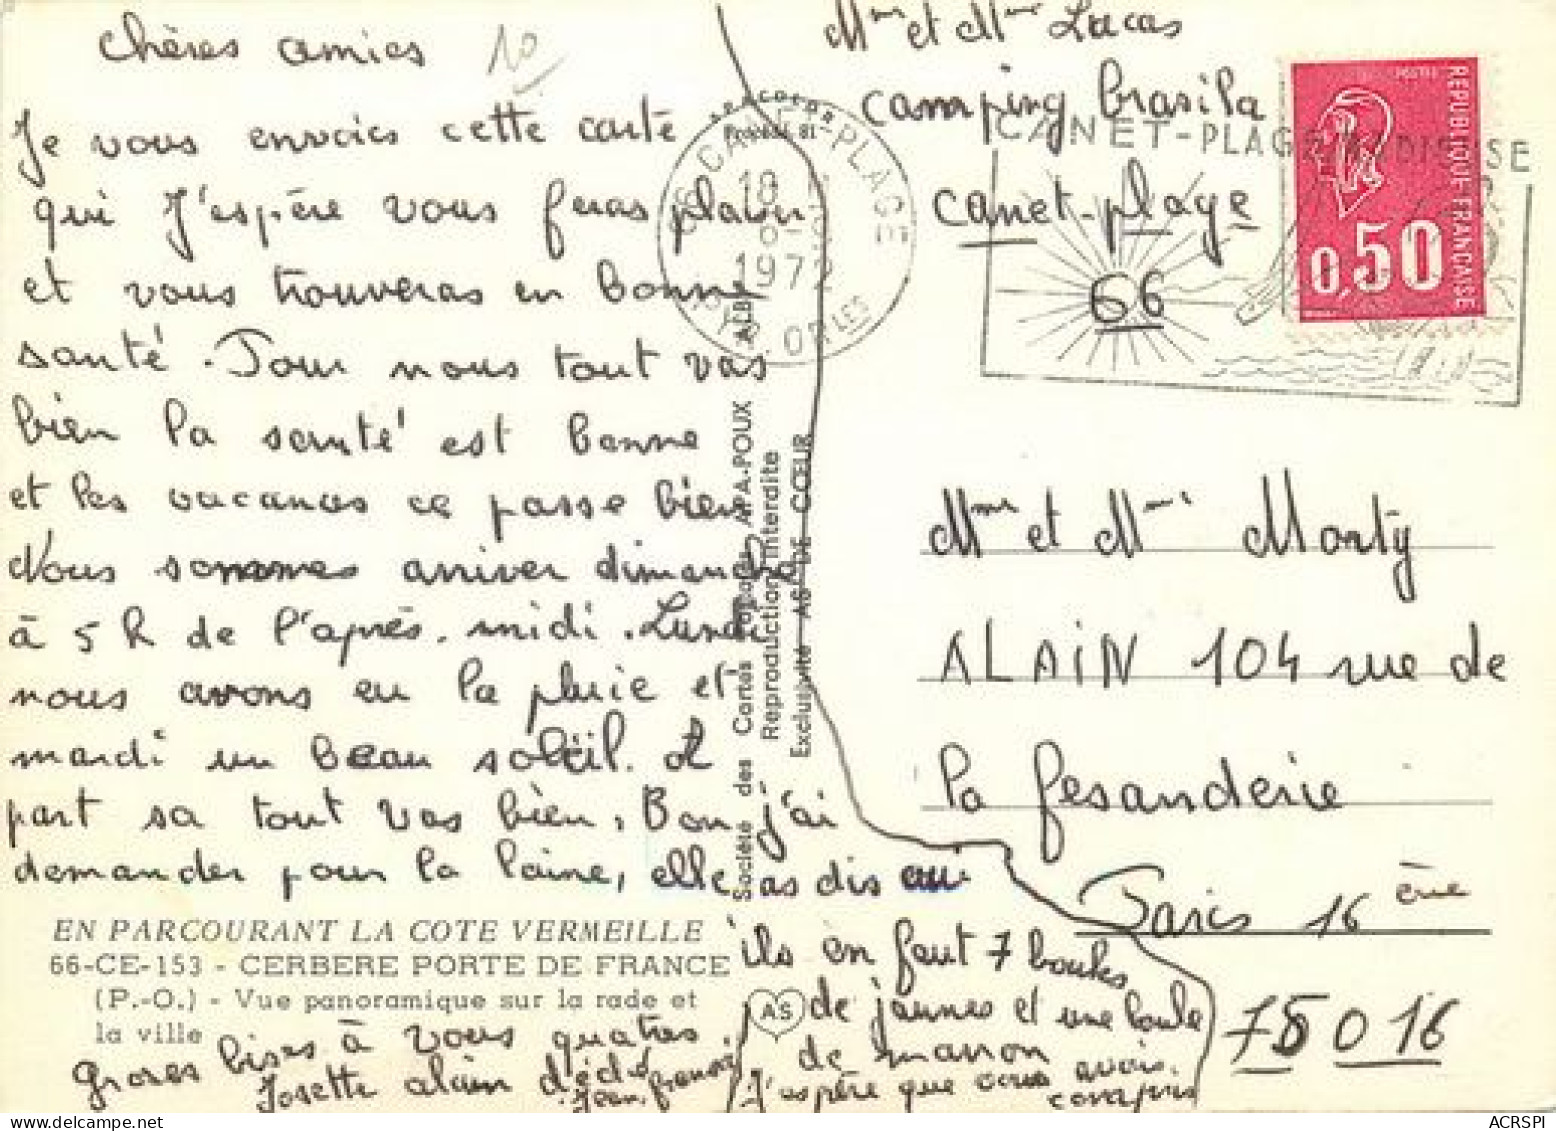 chères amies 10
Je vous envoies cette carte
qui j'espère vous feras plaisir
et vous trouveras en bonne
santé. Pour nous tout vas
bien la santé est bonne
et les vacances ce passe bien
Nous sommes arriver dimanche
à 5 h de l'après-midi. Lundi
nous avons eu la pluie et
mardi un beau soleil. A
part sa tout vas bien, Bon j'ai
demander pour la laine, elle as dis
ils en faut 7 boules
de jaunes et une boule
de marron
J'espère que vous avais
compris
EN PARCOURANT LA COTE VERMEILLE
66-CE-153 - CERBERE PORTE DE FRANCE
(P.-O.) - Vue panoramique sur la rade et
la ville
groses bises à vous quatres
Josette alain dédé
Jean françois
AS
Société des Cartes Postales APA-POUX - ALBI
Reproduction Interdite
Exclusivité AS DE CŒUR
Procédé 81
66 CANET-PLAGE
18
1972
PYR. ORLES
CANET-PLAGE
REPUBLIQUE FRANÇAISE
POSTES
0,50
Mme et Mme Lucas
camping brasila
canet-plage
66
Mme et Mme Monty
ALAIN 104 rue de
la fesanderie
Paris 16 ème
75016
ACRSPI